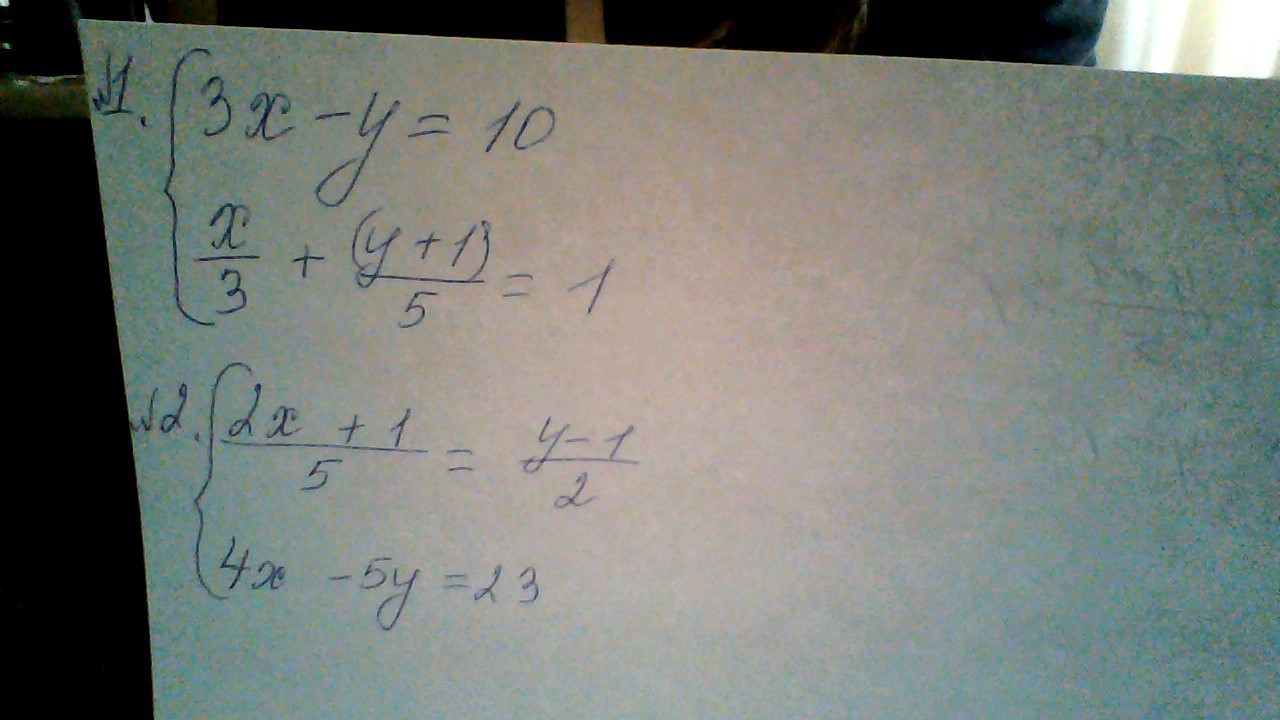 №1. { 3x - y = 10
x/3 + (y + 1)/5 = 1
№2. { 2x + 1/5 = y - 1/2
4x - 5y = 23